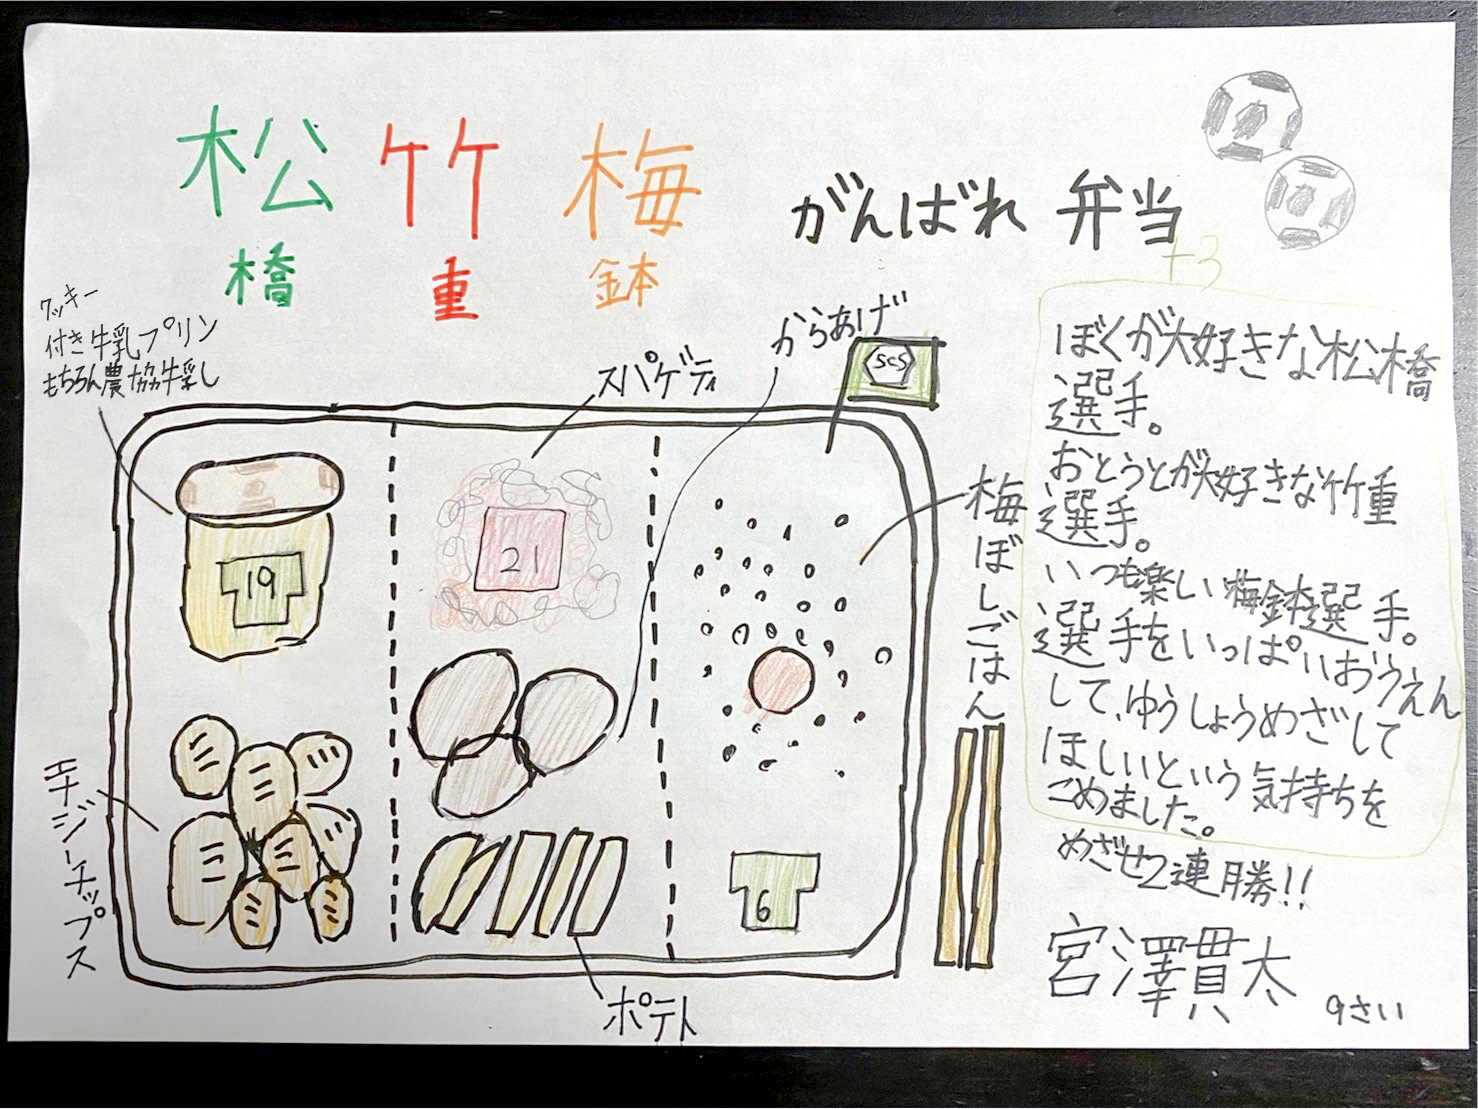 松竹梅
橋重鉢
がんばれ 弁当
+3
クッキー
付き牛乳プリン
もちろん農協牛乳し
スパゲティ
からあげ
scs
19
21
6
梅ぼしごはん
エナジーチップス
ポテト
ぼくが大好きな松橋
選手。
おとうとが大好きな竹重
選手。
いつも楽しい梅鉢選手。
選手をいっぱいおうえん
して、ゆうしょうめざして
ほしいという気持ちを
こめました。
めざせ2連勝!!
宮澤貫太
9さい